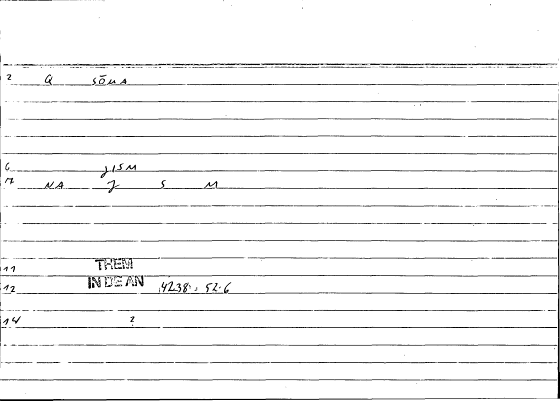 2 Q SŌMA
6 JISM
7 NA J S M
11 THEM
12 IN DE AN 4238. 52.6
14 2